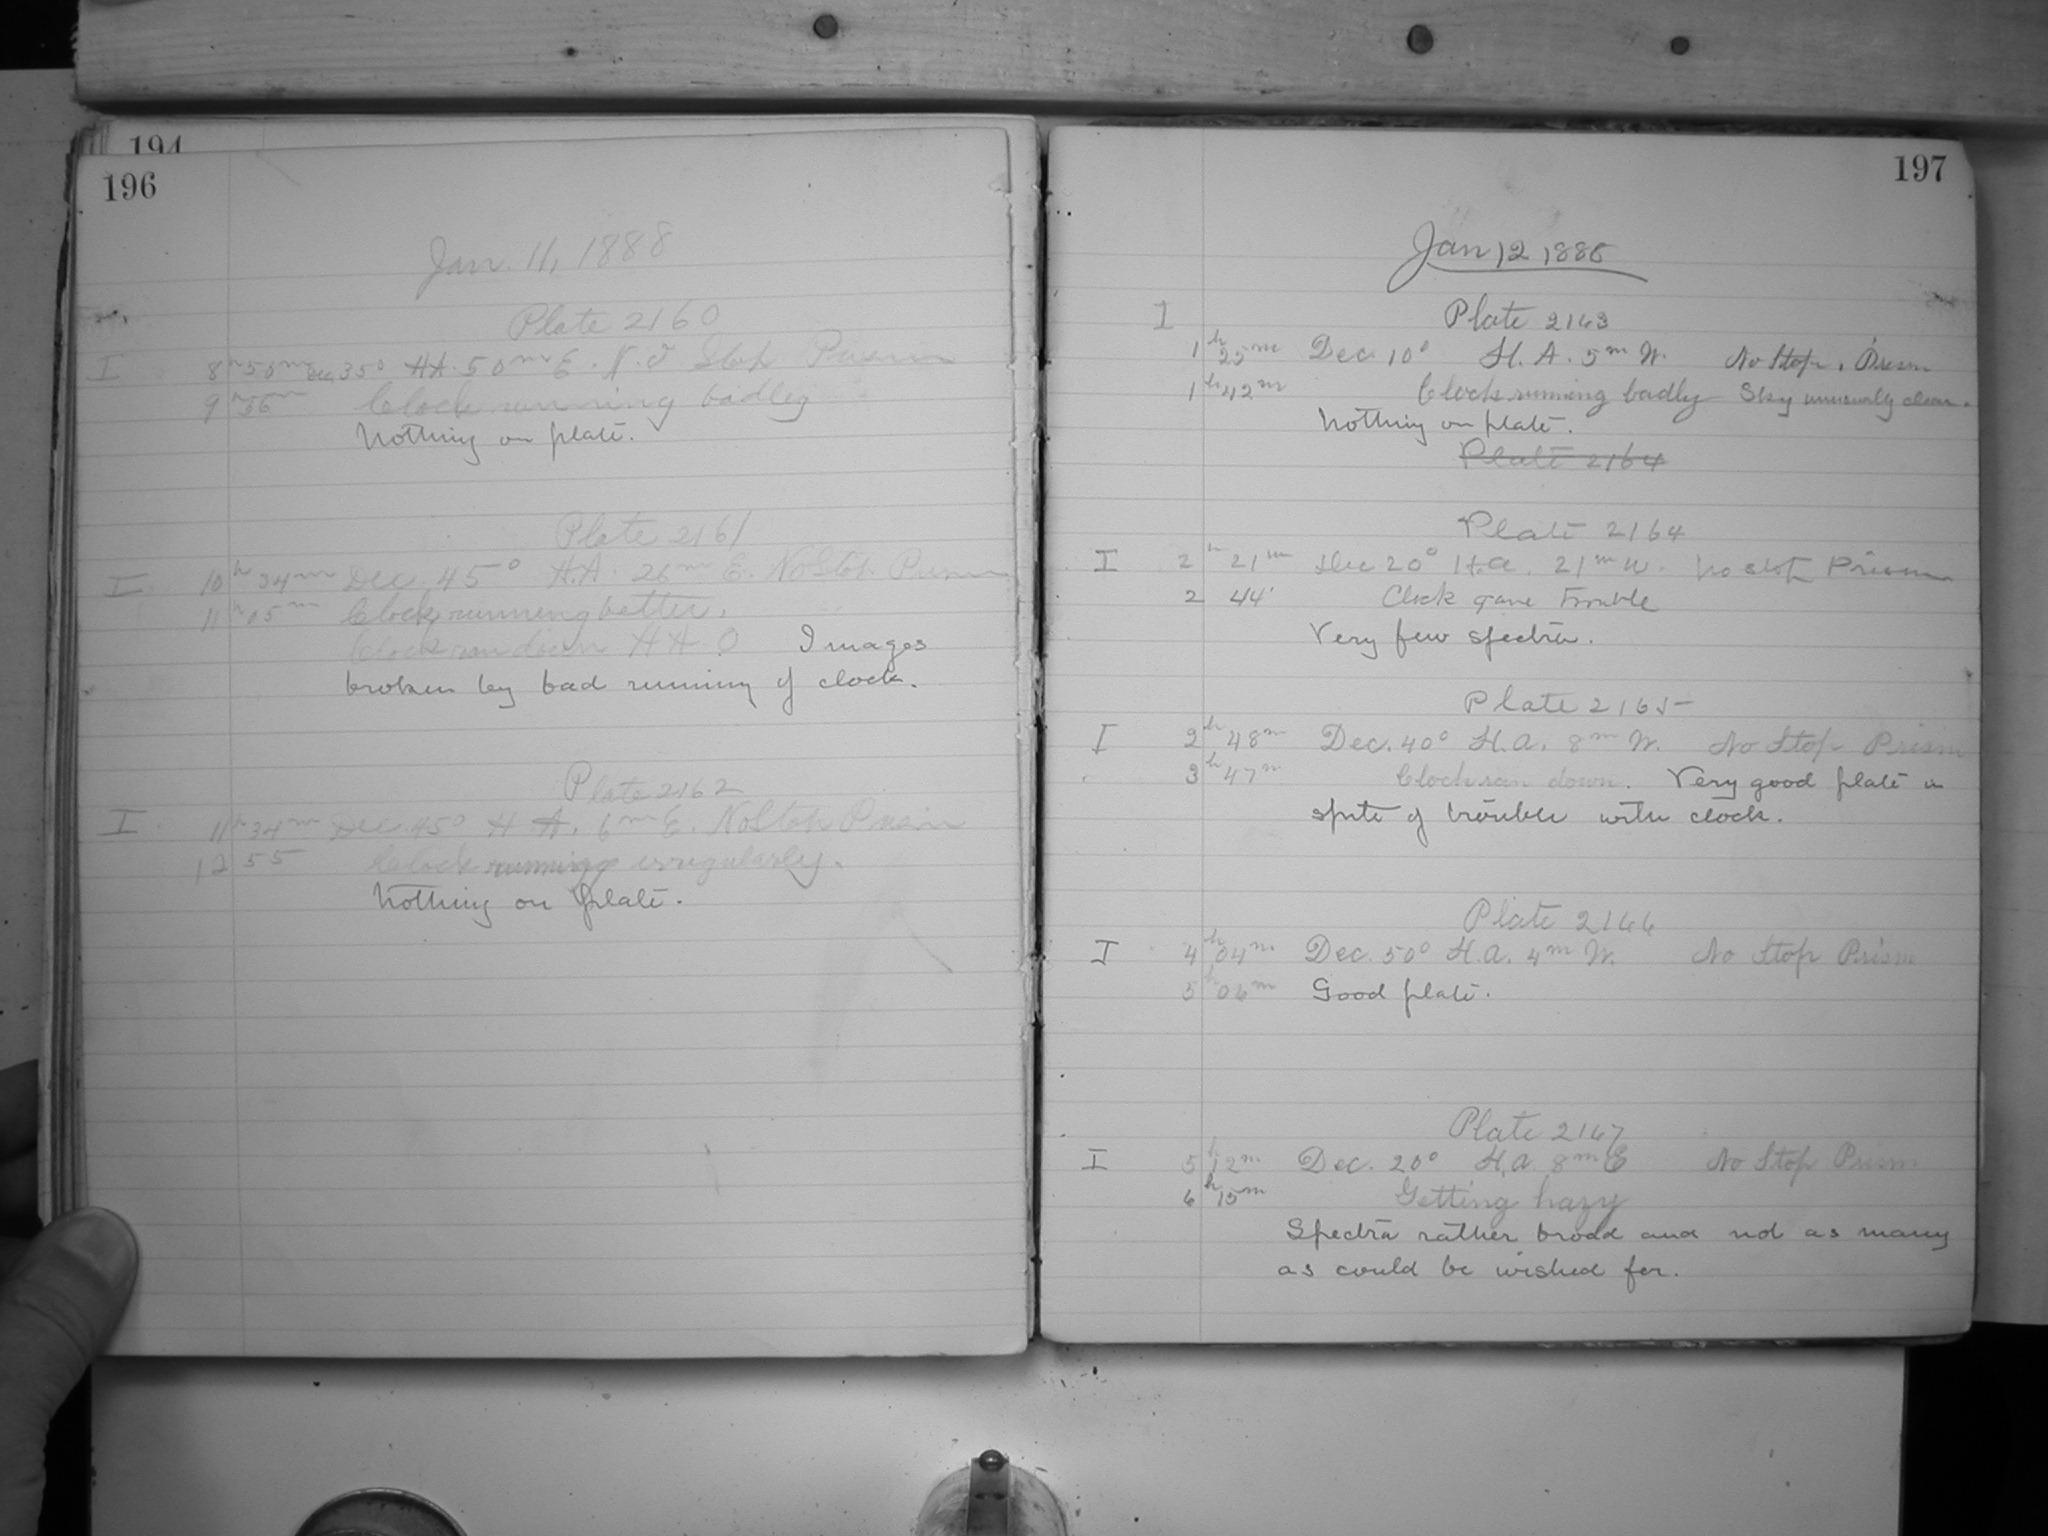 194
196
Jan. 11, 1888
Plate 2160
I 8h 50m Dec 35° H.A. 50m E. No Stop Prism
9h 56m Clock running badly
Nothing on plate.
Plate 2161
I 10h 34m Dec. 45° H.A. 26m E. No Stop Prism
11h 05m Clock running better.
Clock ran down H A 0 Images
broken by bad running of clock.
Plate 2162
I 11h 34m Dec. 45° H.A. 6m E. No Stop Prism
12 55 Clock running irregularly.
Nothing on plate.
197
Jan 12 1888
I Plate 2163
1h 25m Dec 10° H. A. 5m W. No Stop. Prism
1h 42m Clock running badly Sky unusually clear.
Nothing on plate.
Plate 2164
Plate 2164
I 2h 21m Dec 20° H.a. 21m W. No stop Prism
2 44 Clock gave trouble
Very few spectra.
Plate 2165
I 2h 48m Dec. 40° H.a. 8m W. No Stop Prism
3h 47m Clock ran down. Very good plate in
spite of trouble with clock.
Plate 2166
I 4h 04m Dec. 50° H.a. 4m W. No Stop Prism
5h 06m Good plate.
Plate 2167
I 5h 12m Dec. 20° H.a. 8m E No Stop Prism
6h 15m Getting hazy
Spectra rather broad and not as many
as could be wished for.